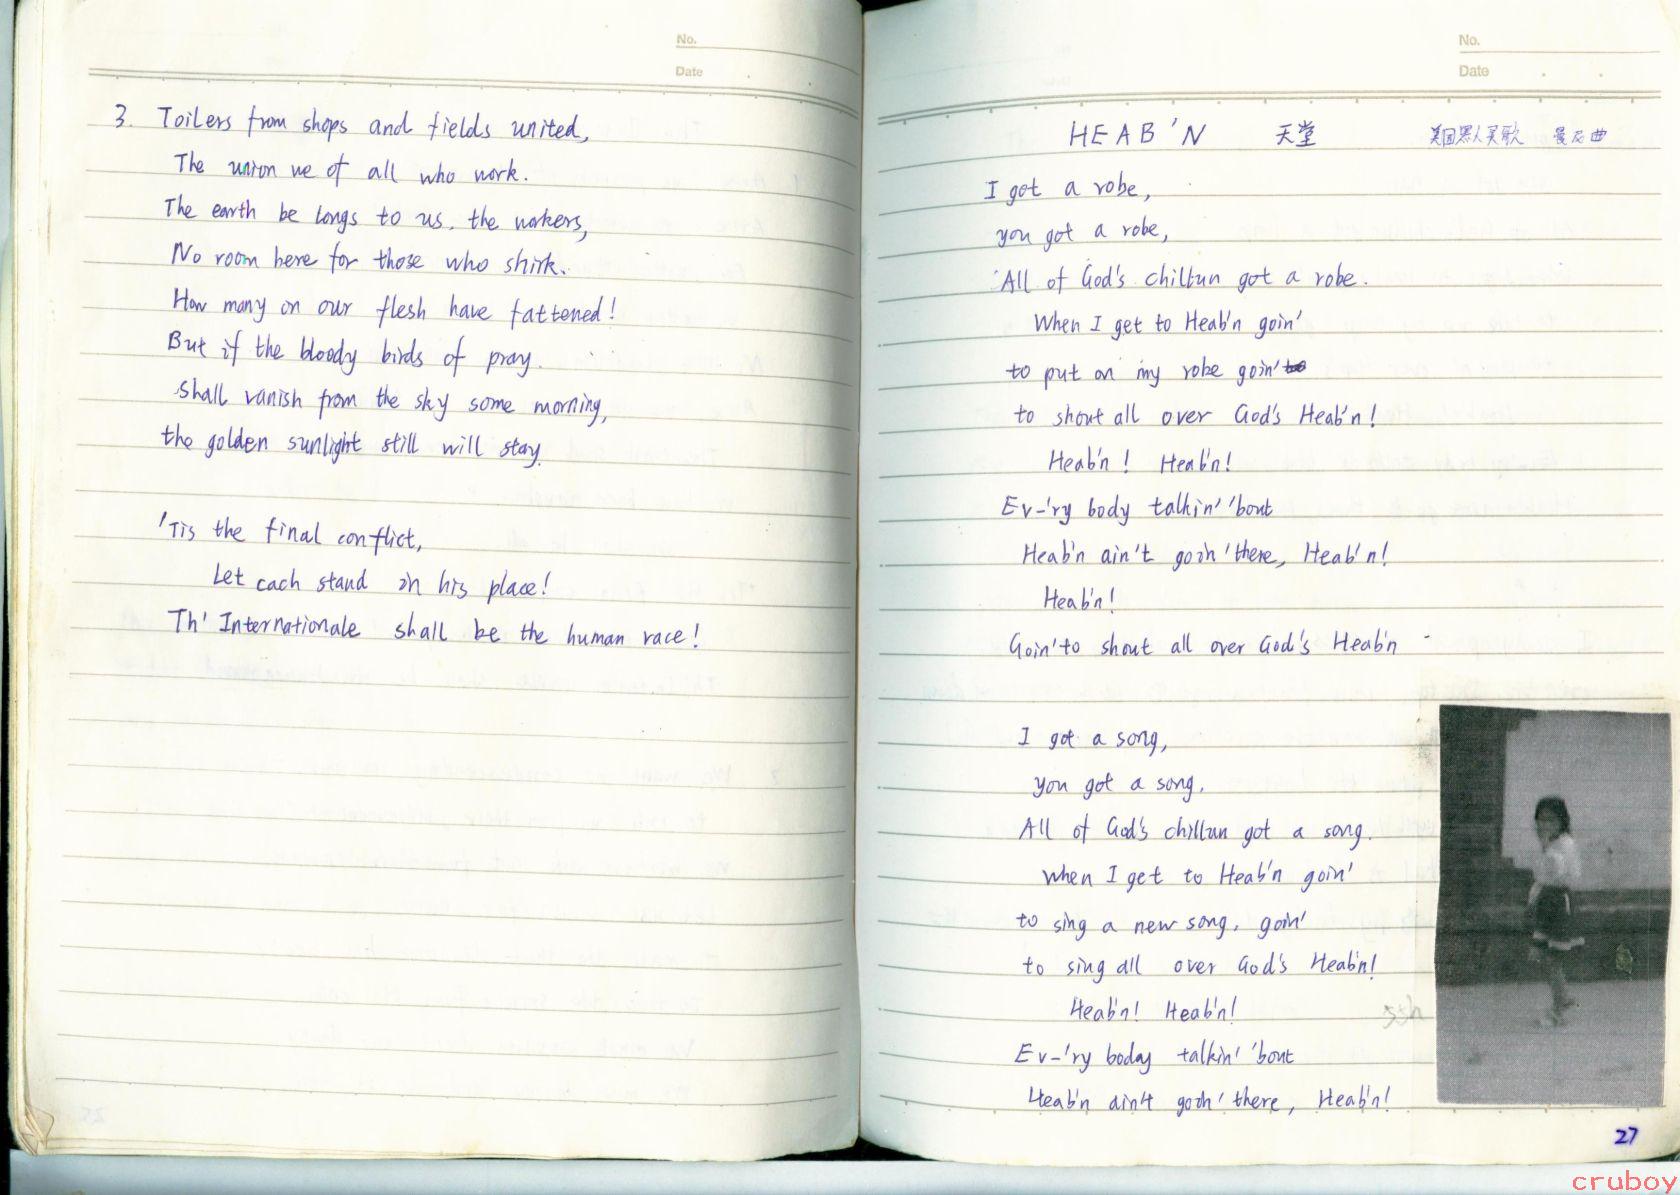 No.
Date
3. Toilers from shops and fields united,
The union we of all who work.
The earth be longs to us. the workers,
No room here for those who shirk.
How many on our flesh have fattened!
But if the bloody birds of pray.
shall vanish from the sky some morning,
the golden sunlight still will stay.
'Tis the final conflict,
Let each stand in his place!
Th' Internationale shall be the human race!
No.
Date
HEAB'N 天堂 美国黑人灵歌 曼尼曲
I got a robe,
you got a robe,
All of God's chillun got a robe.
When I get to Heab'n goin'
to put on my robe goin'
to shout all over God's Heab'n!
Heab'n! Heab'n!
Ev-'ry body talkin' 'bout
Heab'n ain't goin' there, Heab'n!
Heab'n!
Goin' to shout all over God's Heab'n
I got a song,
you got a song.
All of God's chillun got a song.
when I get to Heab'n goin'
to sing a new song. goin'
to sing all over God's Heab'n!
Heab'n! Heab'n!
Ev-'ry boday talkin' 'bout
Heab'n ain't goin' there, Heab'n!
27
cruboy